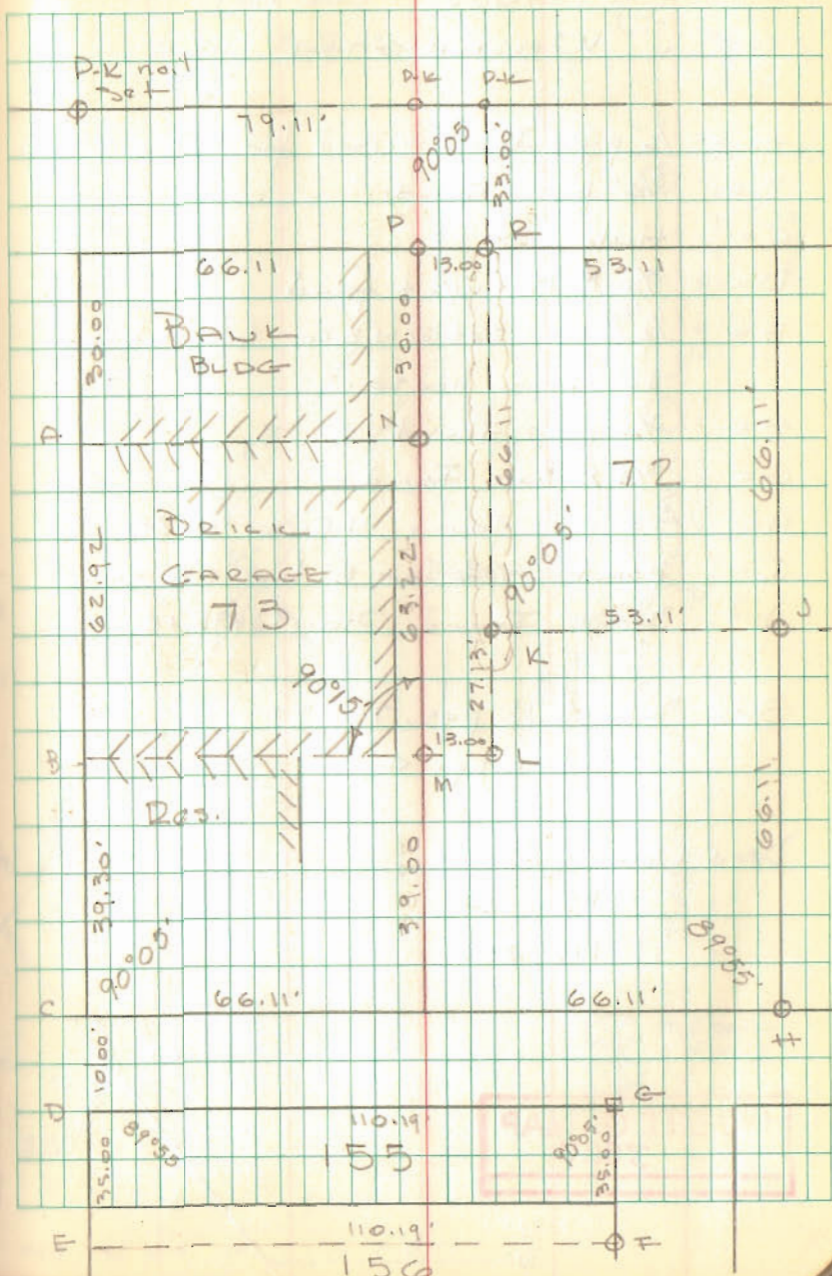 P-K nail
Set
P-K
P-K
79.11'
90°05'
33.00'
P
R
66.11
13.00
53.11
30.00
BANK
BLDG
30.00
A
N
66.11
66.11'
72
BRICK
GARAGE
73
62.92
63.22
90°05'
53.11'
J
K
27.13'
90°15'
B
13.00
L
M
Res.
39.30'
39.00
66.11
90°05'
89°55'
C
66.11'
66.11'
H
10.00'
D
G
110.19'
89°55'
155
90°05'
35.00
35.00
E
110.19'
F
156